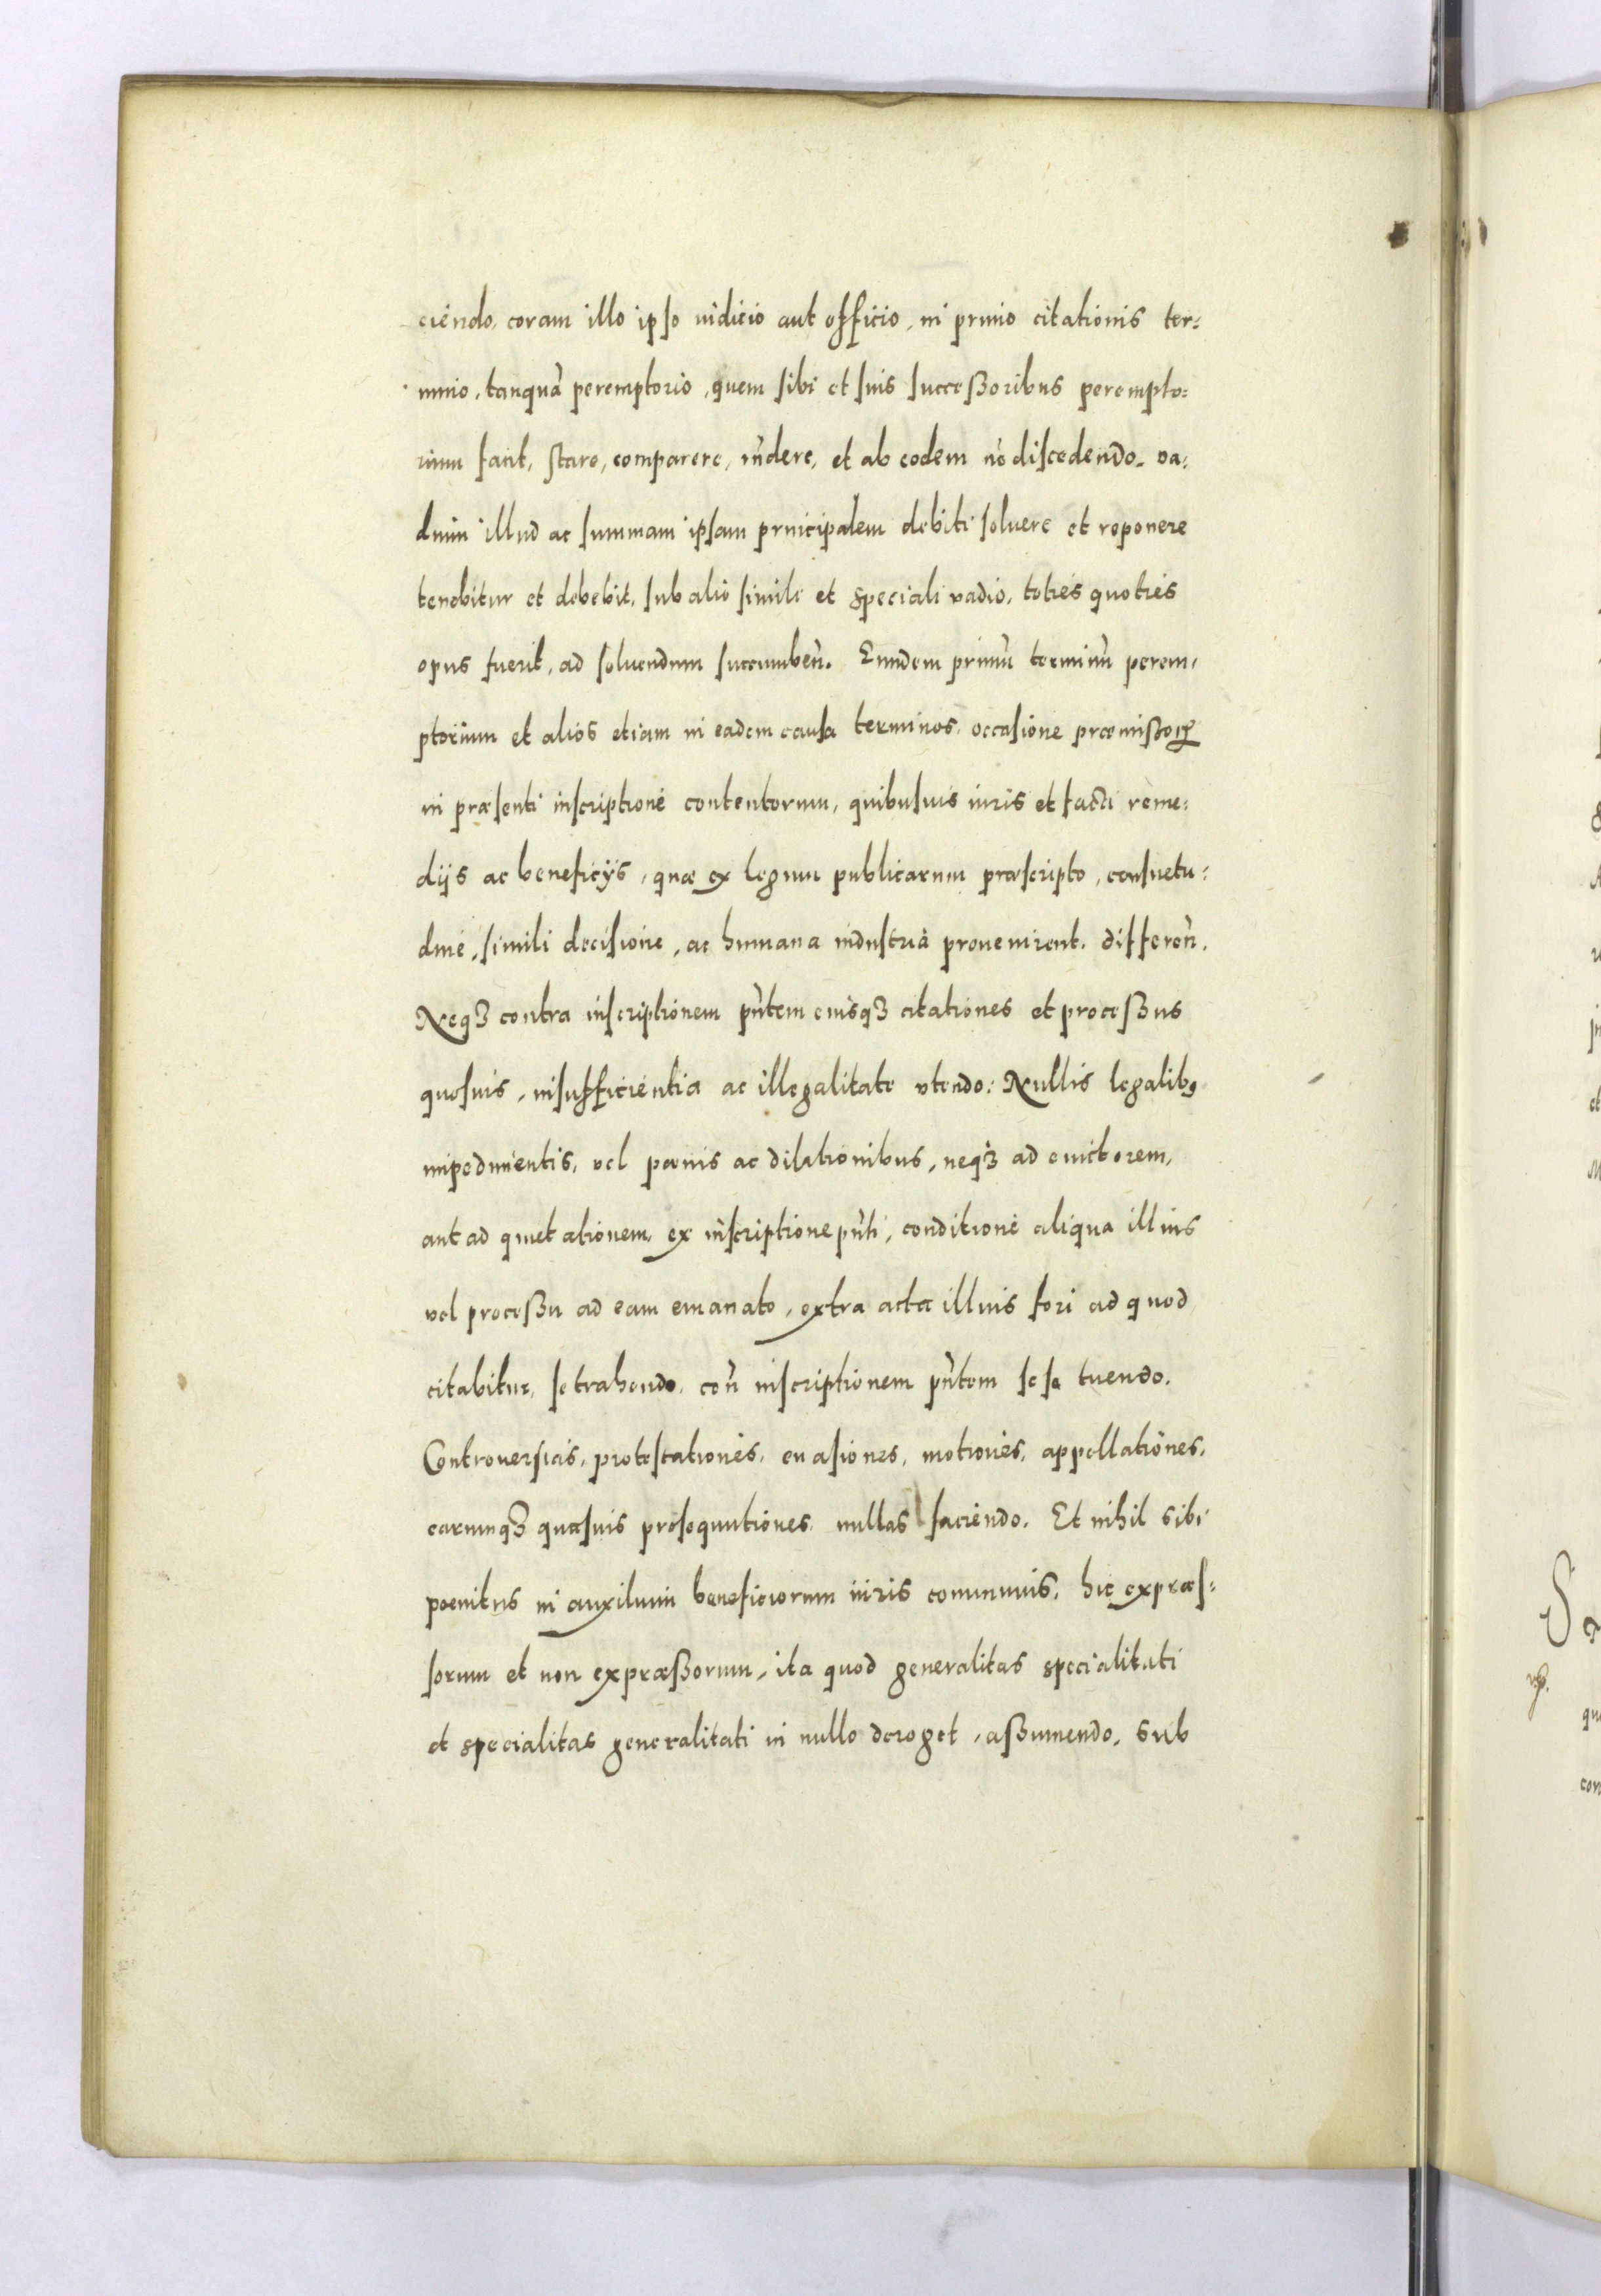 ciendo, coram illo ipso iudicio aut officio, in primo citationis ter=
mino, tanquã peremptorio, quem sibi et suis successoribus perempto=
rium facit, stare, comparere, rñdere, et ab eodem nõ discedendo. va=
dium illud ac summam ipsam principalem debiti soluere et reponere
tenebitur et debebit, sub alio simili et speciali vadio, toties quoties
opus fuerit, ad soluendum succumbeñ. Eundem primũ terminũ perem=
ptorium et alios etiam in eadem causa terminos, occasione præmissoꝝ
in præsenti inscriptione contentorum, quibusuis iuris et facti reme=
dijs ac beneficijs, quæ ex legum publicarum præscripto, consuetu=
dine, simili decisione, ac humana industria prouenirent. differeñ.
Neqꝫ contra inscriptionem pñtem eiusqꝫ citationes et processus
quosuis, insufficientia ac illegalitate vtendo: Nullis legalibꝰ
impedimentis, vel pœnis ac dilationibus, neqꝫ ad euictorem,
aut ad quietationem, ex inscriptione pñti, conditione aliqua illius
vel processu ad eam emanato, extra acta illius fori ad quod
citabitur, se trahendo, coñ inscriptionem pñtem sese tuendo.
Controuersias, protestationes, euasiones, motiones, appellationes,
earumqꝫ quasuis prosequutiones nullas faciendo. Et nihil sibi
poenitus in auxilium beneficiorum iuris communis, hic expræs=
sorum et non expræssorum, ita quod generalitas specialitati
et specialitas generalitati in nullo deroget, assumendo, sub